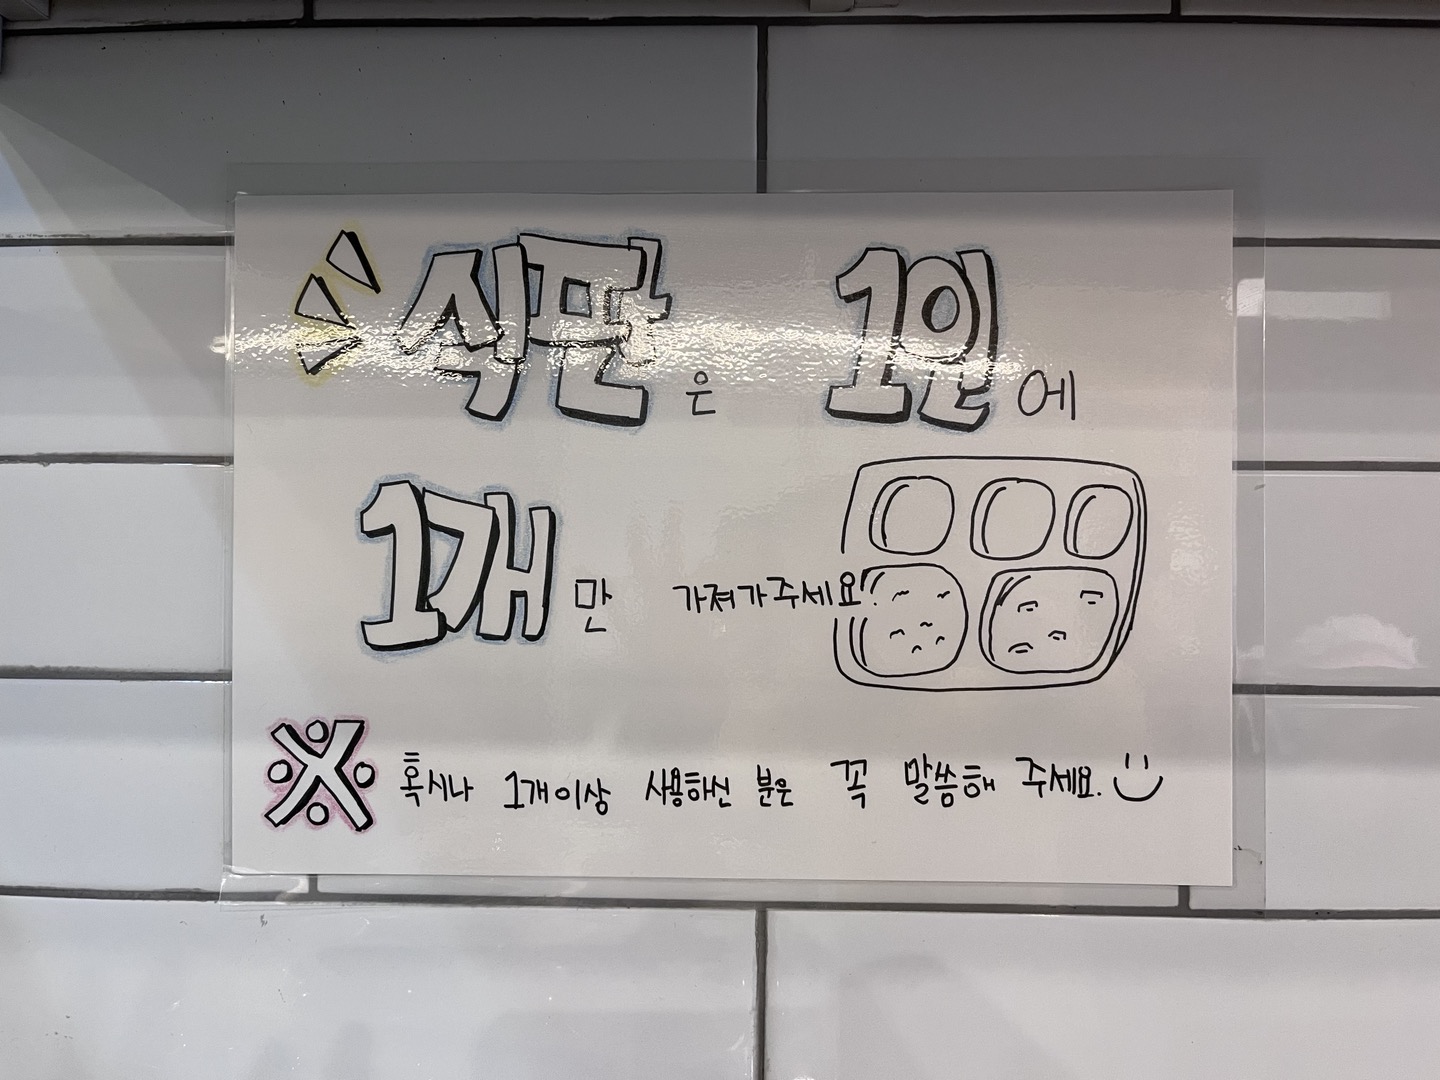 식판은 1인에
1개만 가져가주세요!
※ 혹시나 1개이상 사용하신 분은 꼭 말씀해 주세요.